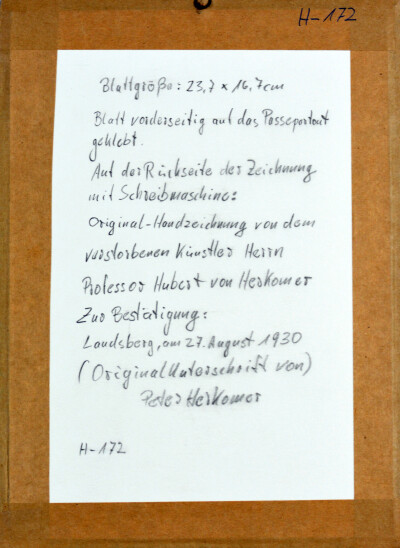 H-172
Blattgröße: 23,7 x 16,7cm
Blatt vorderseitig auf das Passepartout
geklebt.
Auf der Rückseite der Zeichnung
mit Schreibmaschine:
Original-Handzeichnung von dem
verstorbenen Künstler Herrn
Professor Hubert von Herkomer
Zur Bestätigung:
Landsberg, am 27. August 1930
(Original Unterschrift von)
Peter Herkomer
H-172